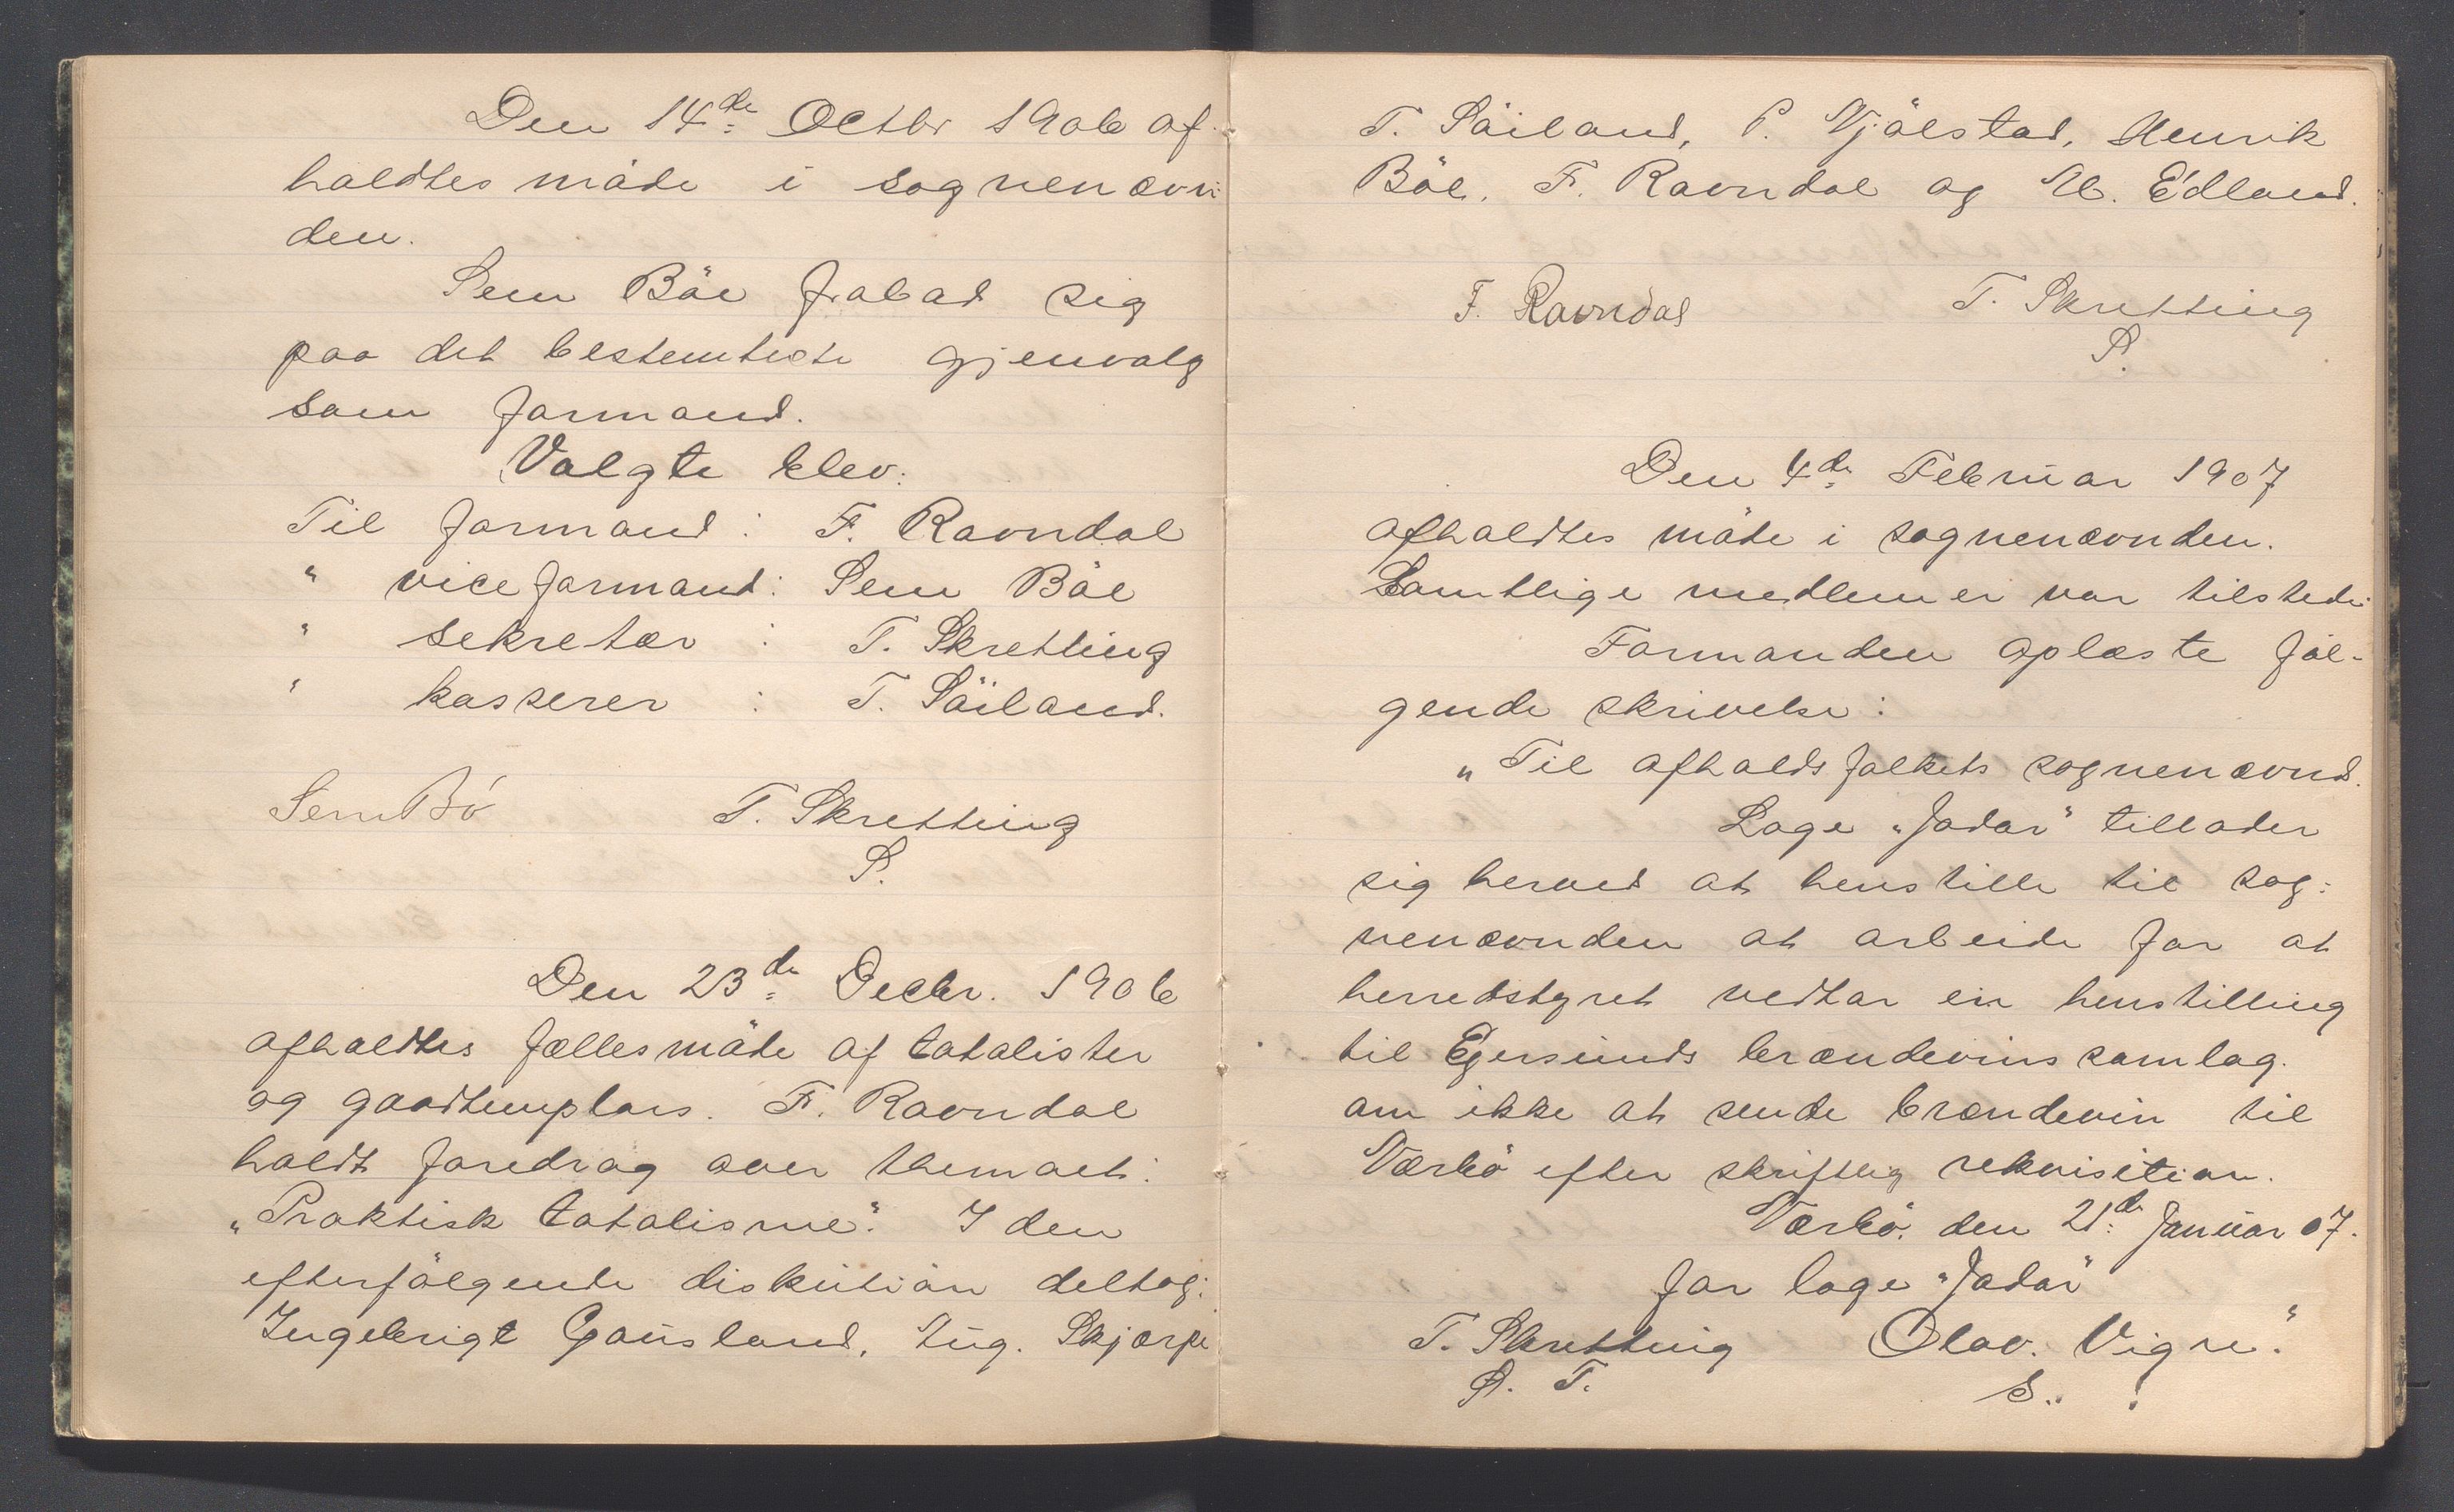 Den 14de Octbr 1906 af-
holdtes møde i sognenævn-
den.
Sem Bøe frabad sig
paa det bestemteste gjenvalg
som formand.
Valgte blev:
Til formand : F. Ravndal
" viceformand: Sem Bøe
" sekretær : T. Skretting
" kasserer : T. Söiland.
Sem Bø T. Skretting
S.
Den 23de Decbr. 1906
afholdtes fællesmøde af totalister
og goodtemplars. F. Ravndal
holdt foredrag over themaet:
"Praktisk totalisme". I den
efterfølgende diskution deltog:
Ingebrigt Gausland, Ing. Skjærpe
T. Söiland, P. Njølstad, Henrik
Bøe, F. Ravndal og M. Edland.
F. Ravndal T. Skretting
S.
Den 4de Februar 1907
afholdtes møde i sognenævnden.
Samtlige medlemer var tilstede.
Formanden oplæste føl-
gende skrivelse:
"Til afholdsfolkets sognenævnd.
Loge "Jadar" tillader
sig herved at henstille til sog-
nenævnden at arbeide for at
herredstyret vedtar en henstilling
til Egersunds brændevinssamlag.
om ikke at sende brændevin til
Nærbø efter skriftlig rekvisition.
Nærbø. den 21de Januar 07.
for loge "Jadar"
T. Skretting Olav. Vigre."
D. T. S..